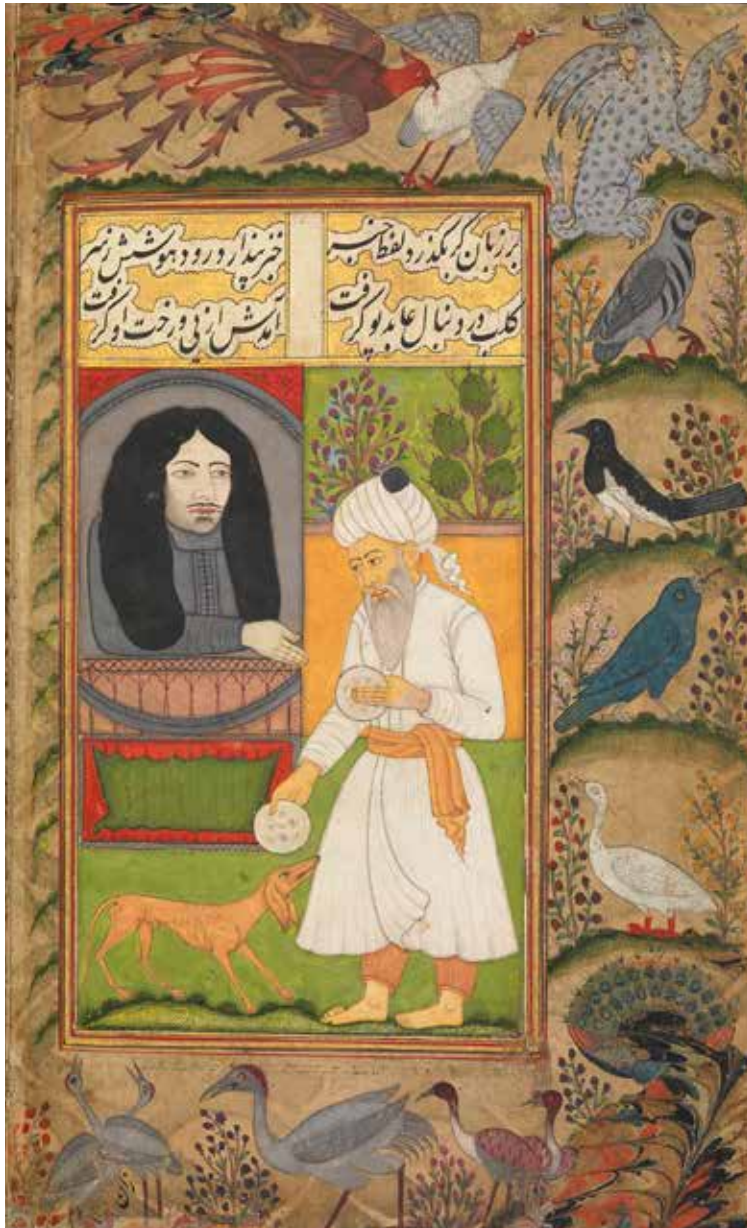 بر زبان کر بکذرد لفظ خبر خبز پندارد رود هوشش ز سر
کلب در دنبال عابد بو کرفت آمدش از پی و رخت او کرفت